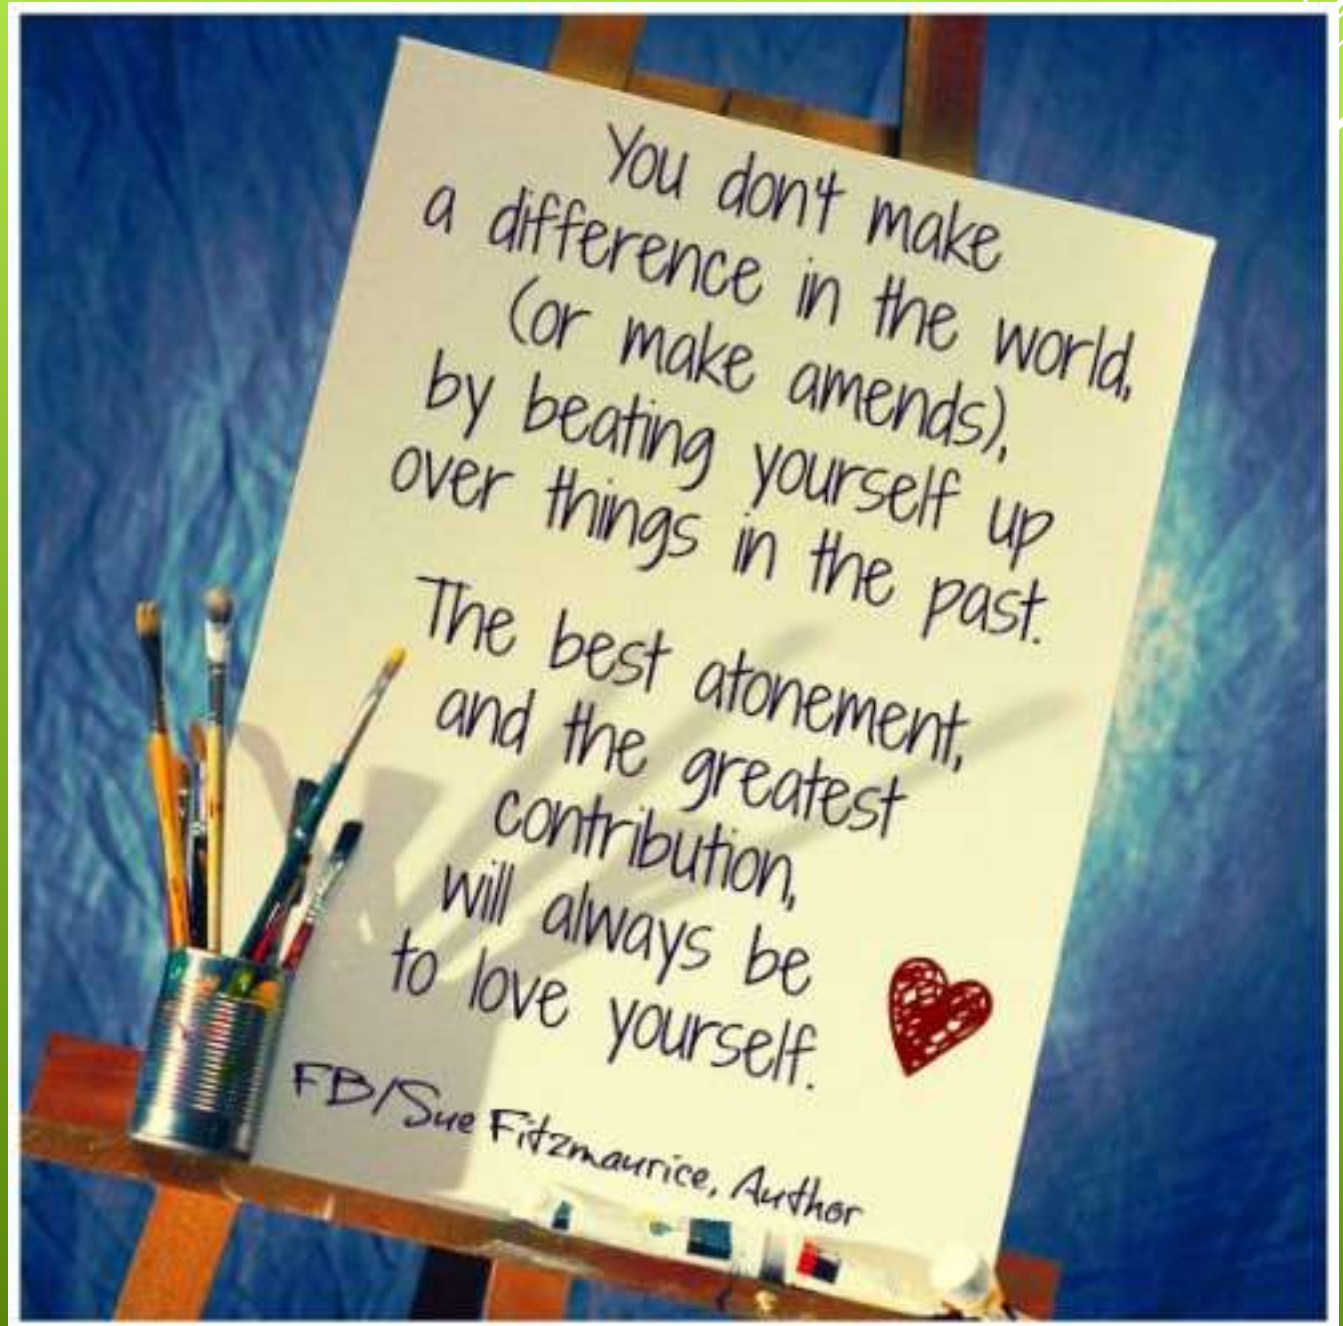 You don't make
a difference in the world,
(or make amends),
by beating yourself up
over things in the past.
The best atonement,
and the greatest
contribution,
will always be
to love yourself.
FB/Sue Fitzmaurice, Author